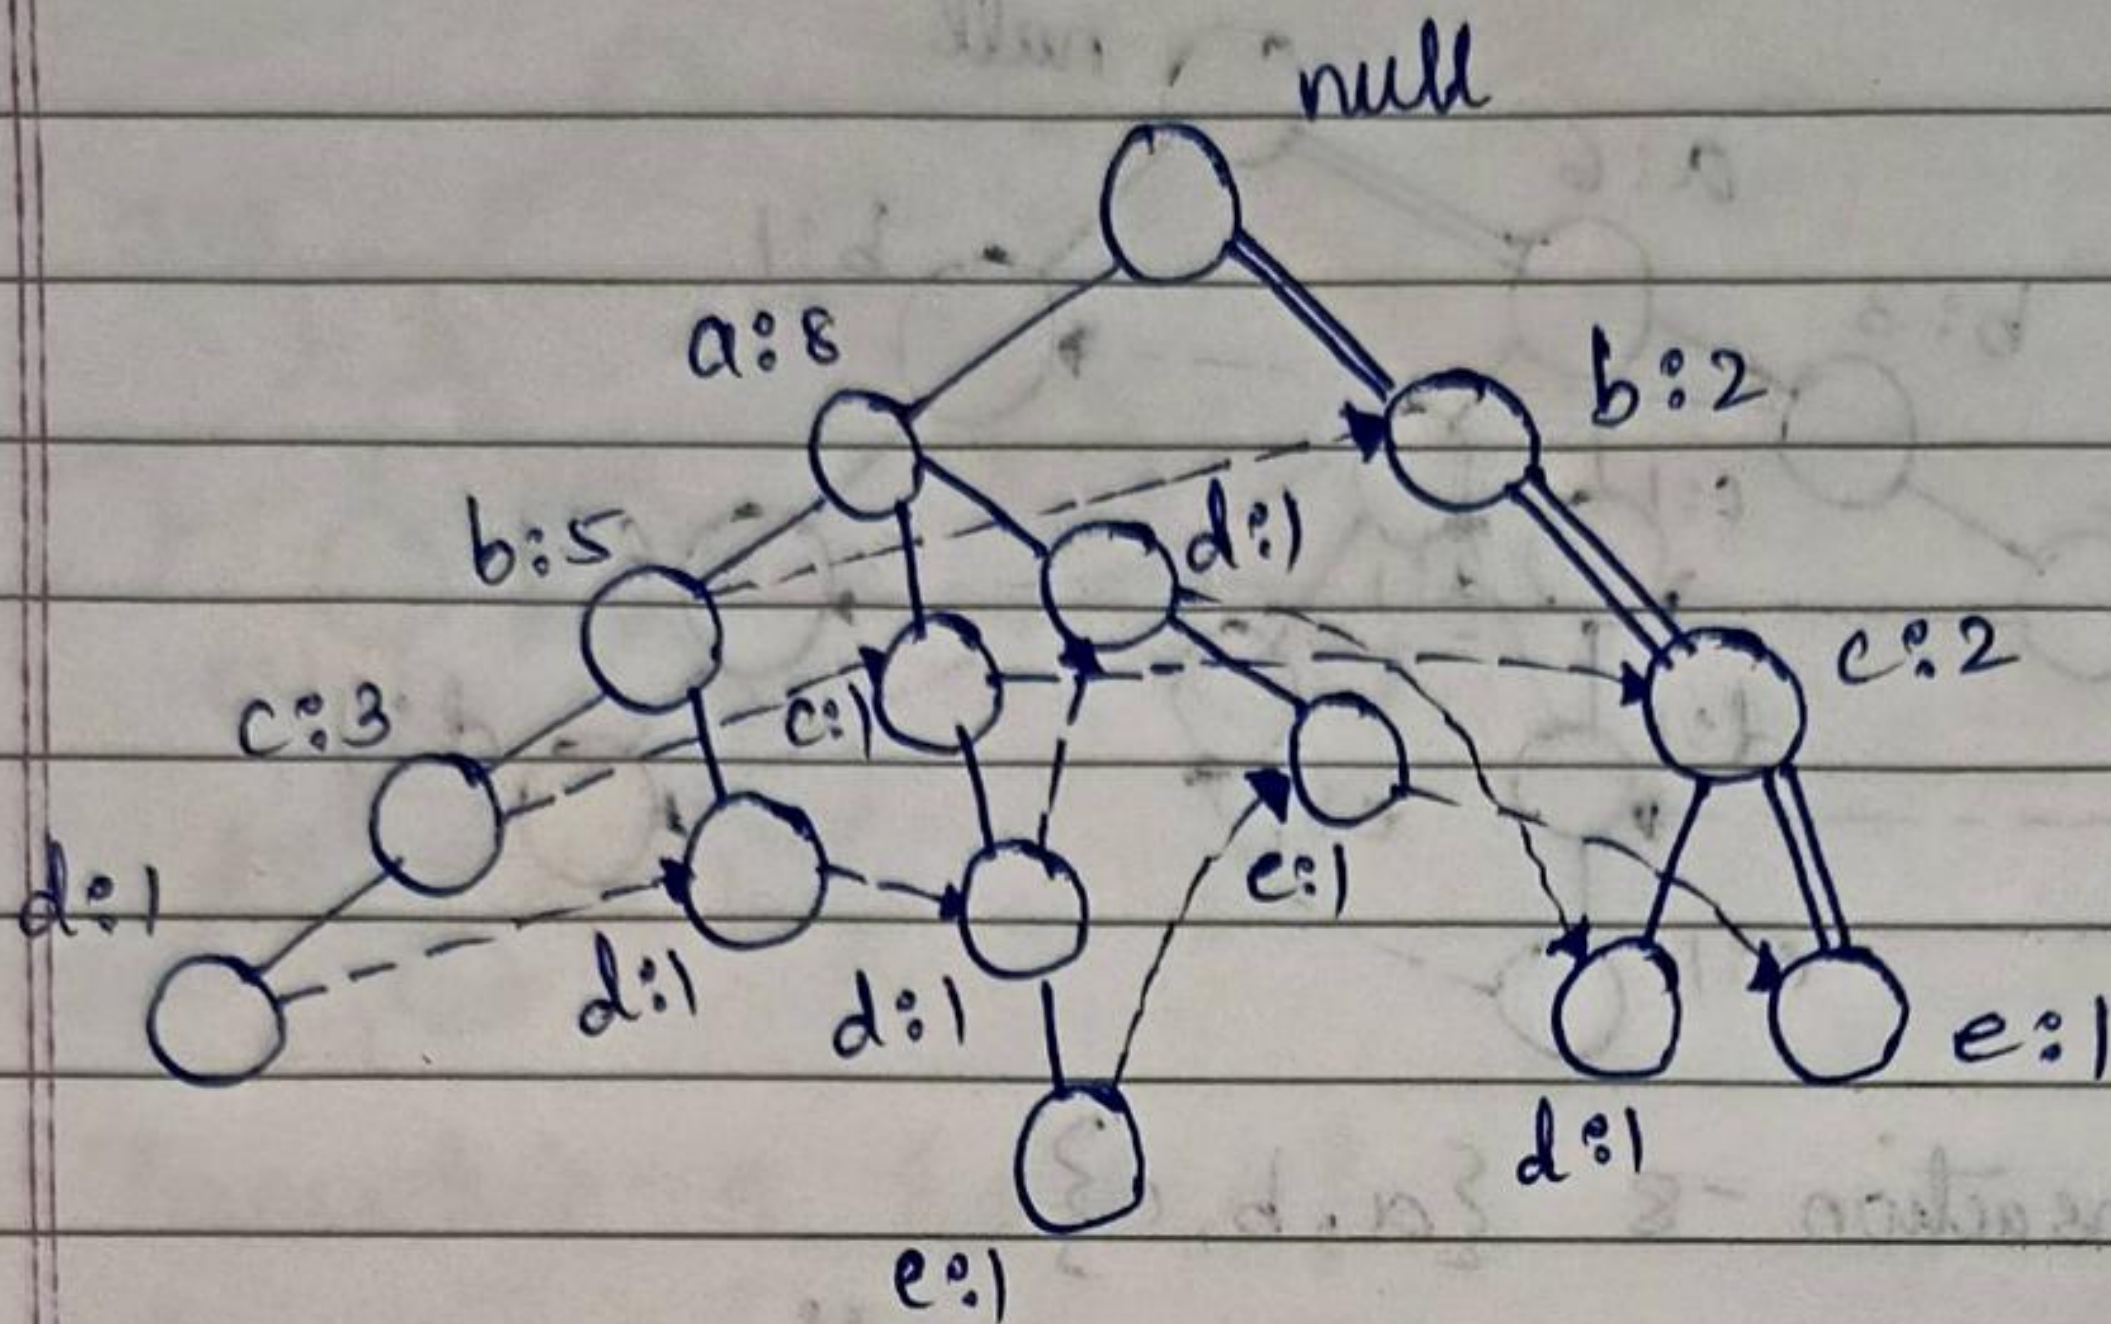 null
a:8
b:2
b:5
d:1
c:3
c:1
c:2
d:1
e:1
d:1
d:1
e:1
d:1
e:1